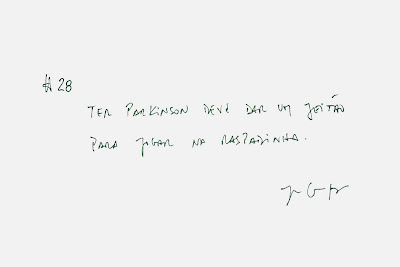 # 28
TER PARKINSON DEVE DAR UM JEITÃO
PARA JOGAR NA RASPADINHA.